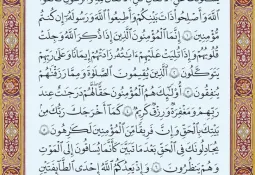 يَسْـَٔلُونَكَ عَنِ ٱلْأَنفَالِ قُلِ ٱلْأَنفَالُ لِلَّهِ وَٱلرَّسُولِ فَٱتَّقُوا۟
ٱللَّهَ وَأَصْلِحُوا۟ ذَاتَ بَيْنِكُمْ وَأَطِيعُوا۟ ٱللَّهَ وَرَسُولَهُۥٓ إِن كُنتُم
مُّؤْمِنِينَ ١ إِنَّمَا ٱلْمُؤْمِنُونَ ٱلَّذِينَ إِذَا ذُكِرَ ٱللَّهُ وَجِلَتْ
قُلُوبُهُمْ وَإِذَا تُلِيَتْ عَلَيْهِمْ ءَايَـٰتُهُۥ زَادَتْهُمْ إِيمَـٰنًا وَعَلَىٰ رَبِّهِمْ
يَتَوَكَّلُونَ ٢ ٱلَّذِينَ يُقِيمُونَ ٱلصَّلَوٰةَ وَمِمَّا رَزَقْنَـٰهُمْ
يُنفِقُونَ ٣ أُو۟لَـٰٓئِكَ هُمُ ٱلْمُؤْمِنُونَ حَقًّا لَّهُمْ دَرَجَـٰتٌ عِندَ
رَبِّهِمْ وَمَغْفِرَةٌ وَرِزْقٌ كَرِيمٌ ٤ كَمَآ أَخْرَجَكَ رَبُّكَ مِنۢ
بَيْتِكَ بِٱلْحَقِّ وَإِنَّ فَرِيقًا مِّنَ ٱلْمُؤْمِنِينَ لَكَـٰرِهُونَ ٥
يُجَـٰدِلُونَكَ فِى ٱلْحَقِّ بَعْدَ مَا تَبَيَّنَ كَأَنَّمَا يُسَاقُونَ إِلَى ٱلْمَوْتِ
وَهُمْ يَنظُرُونَ ٦ وَإِذْ يَعِدُكُمُ ٱللَّهُ إِحْدَى ٱلطَّآئِفَتَيْنِ